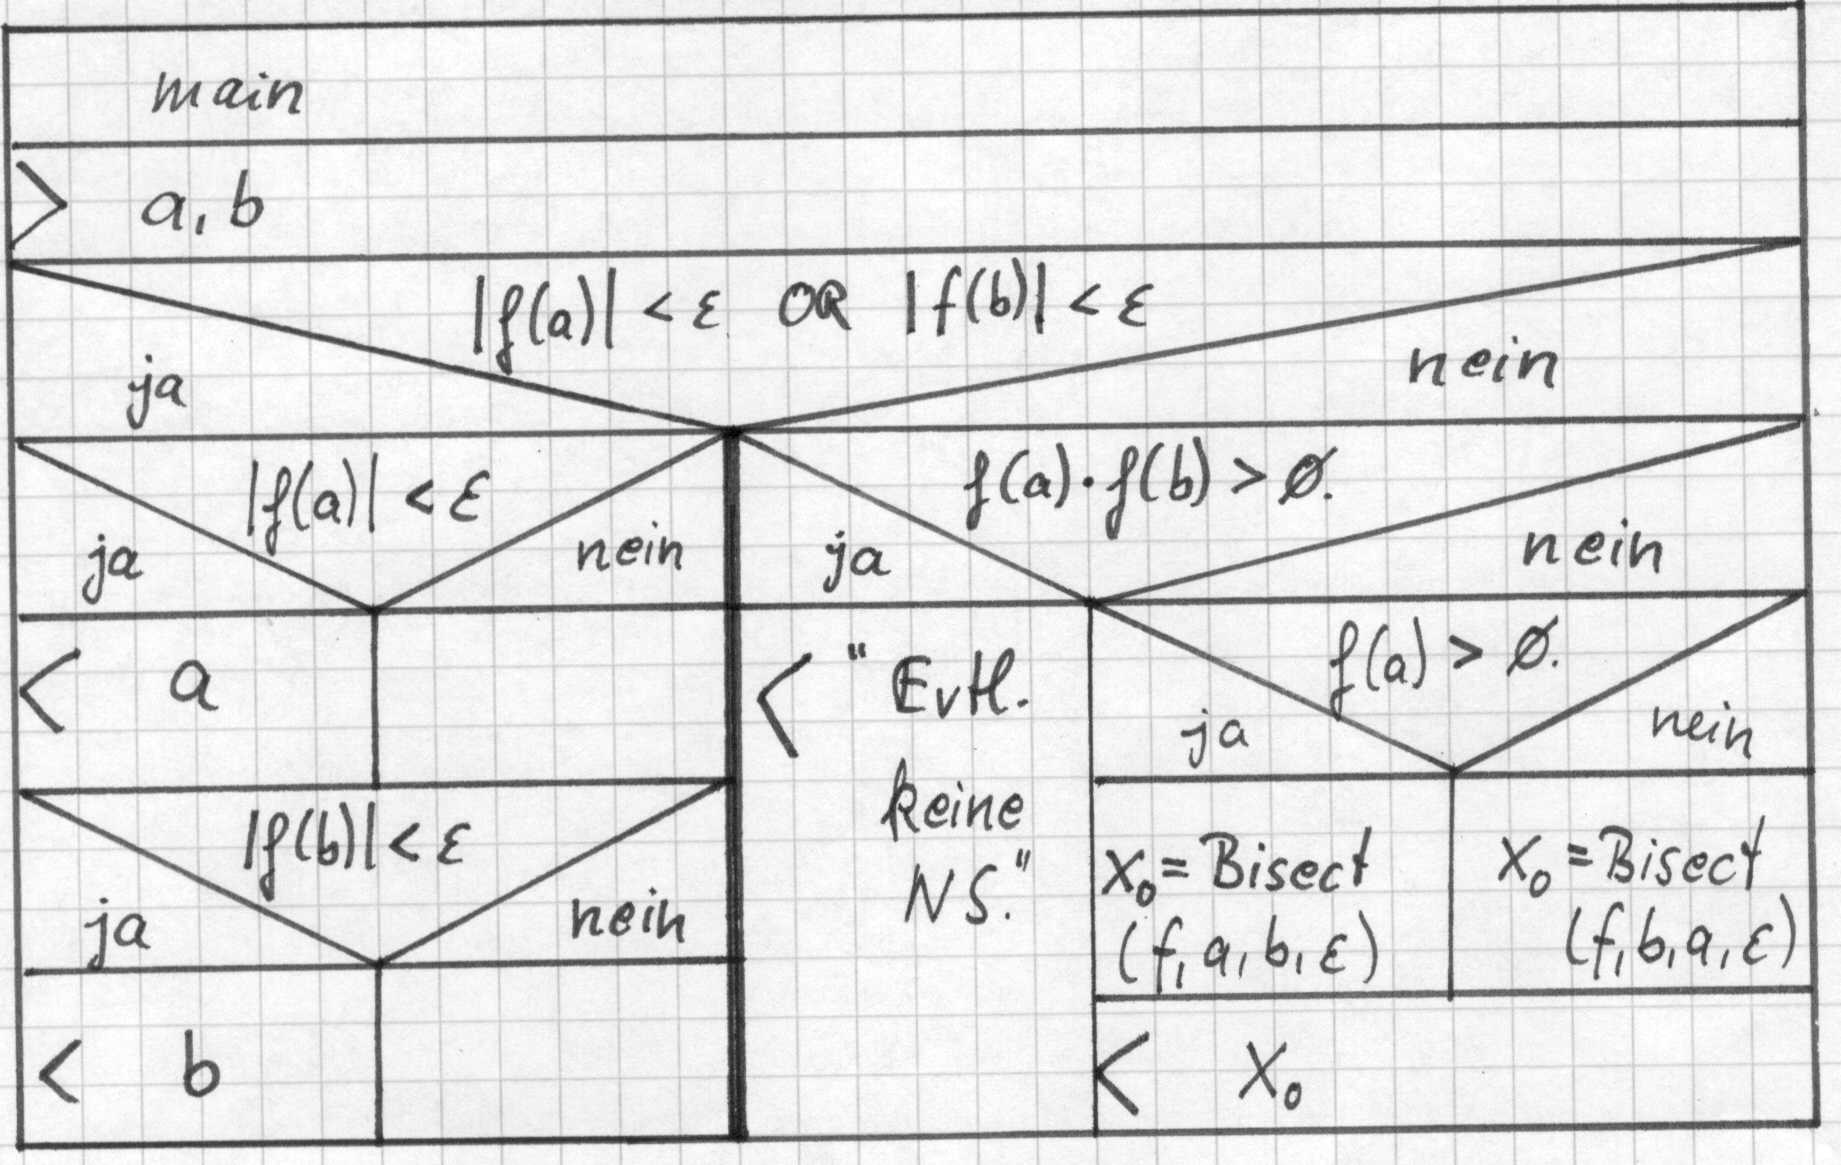 main
> a, b
|f(a)| < ε OR |f(b)| < ε
ja
nein
|f(a)| < ε
ja
nein
< a
|f(b)| < ε
ja
nein
< b
f(a)·f(b) > ∅.
ja
nein
< "Evtl.
keine
NS."
f(a) > ∅.
ja
nein
X₀ = Bisect
(f, a, b, ε)
X₀ = Bisect
(f, b, a, ε)
< X₀